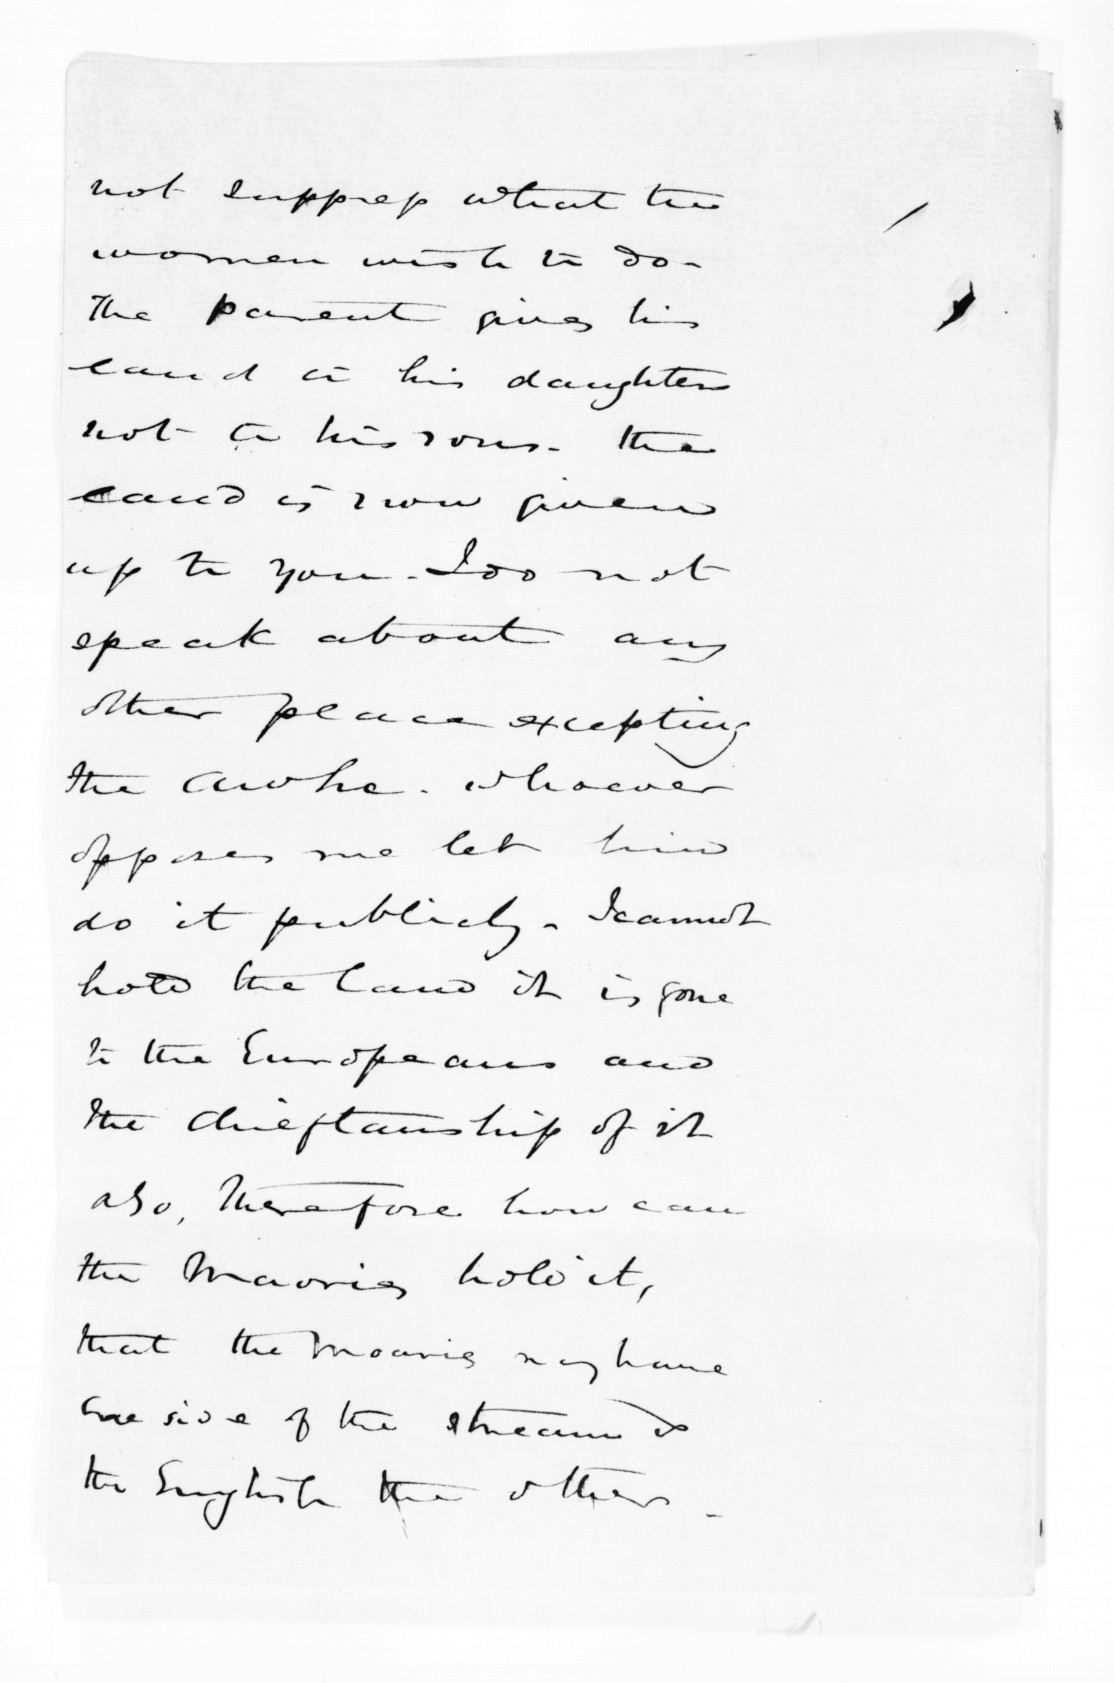 not suppress what the
women wish to do -
The parent gives his
land to his daughters
not to his sons - the
land is now given
up to you - I do not
speak about any
other place excepting
the Awhe. whoever
opposes me let him
do it publicly - I cannot
hold the land it is gone
to the Europeans and
the chieftanship of it
also, therefore how can
the Maories hold it,
that the Moaries may have
one side of the stream &
the English the other -